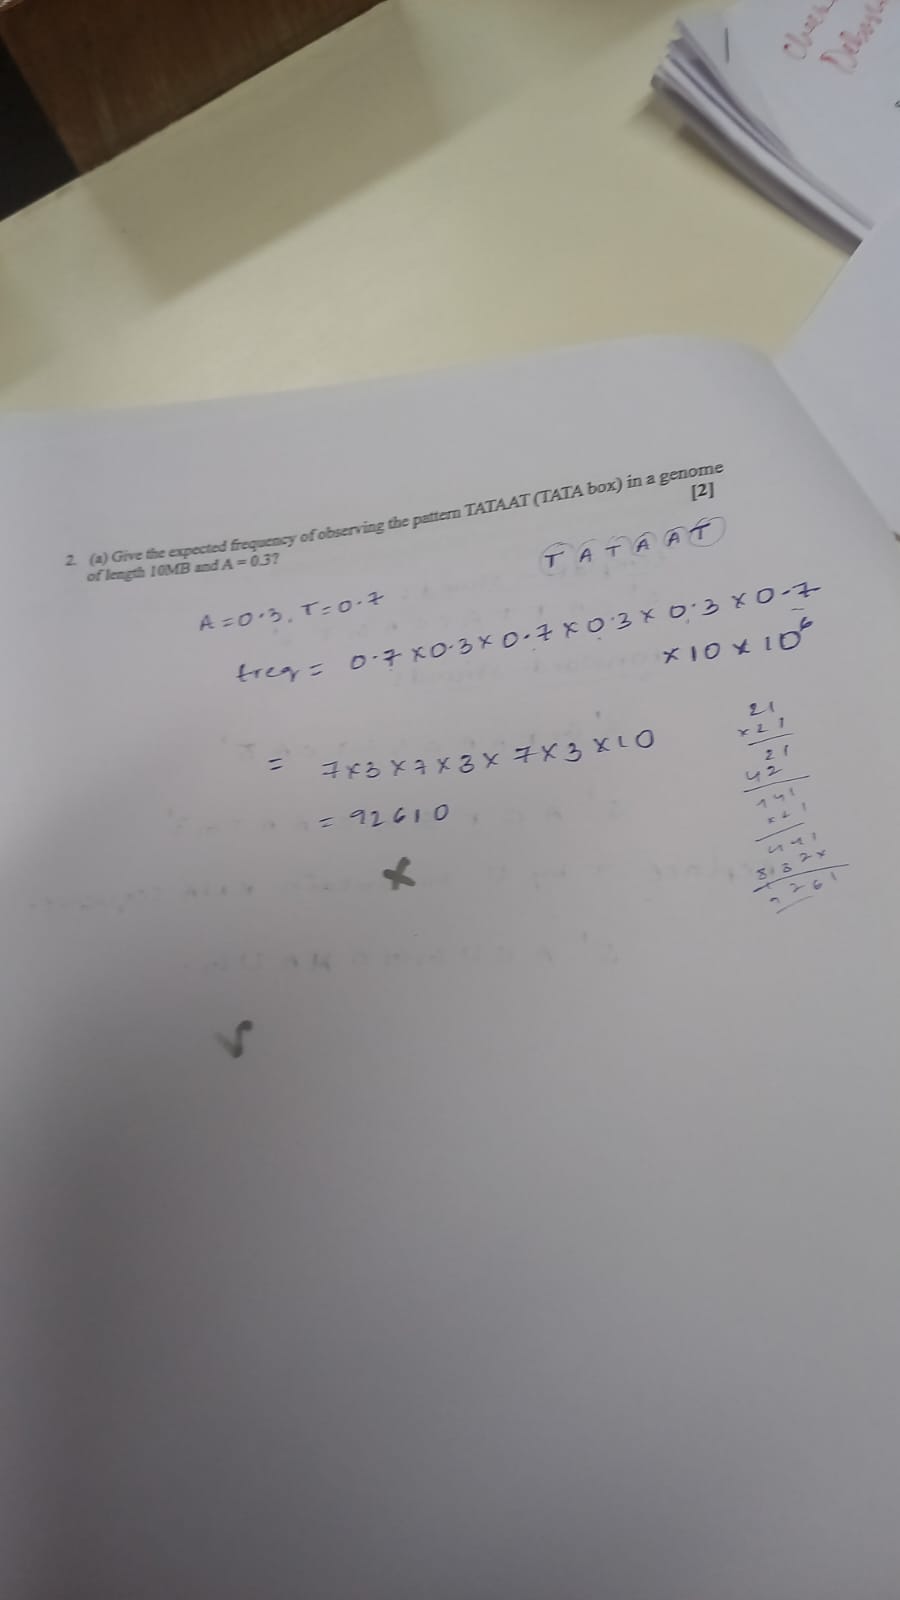 2. (a) Give the expected frequency of observing the pattern TATAAT (TATA box) in a genome
of length 10MB and A = 0.3? [2]
T A T A A T
A = 0.3, T = 0.7
freq = 0.7 x 0.3 x 0.7 x 0.3 x 0.3 x 0.7
x 10 x 10⁶
= 7x3 x 7 x 3 x 7x3 x10
= 92610
21
x 21
21
42
441
x 21
441
882x
9261